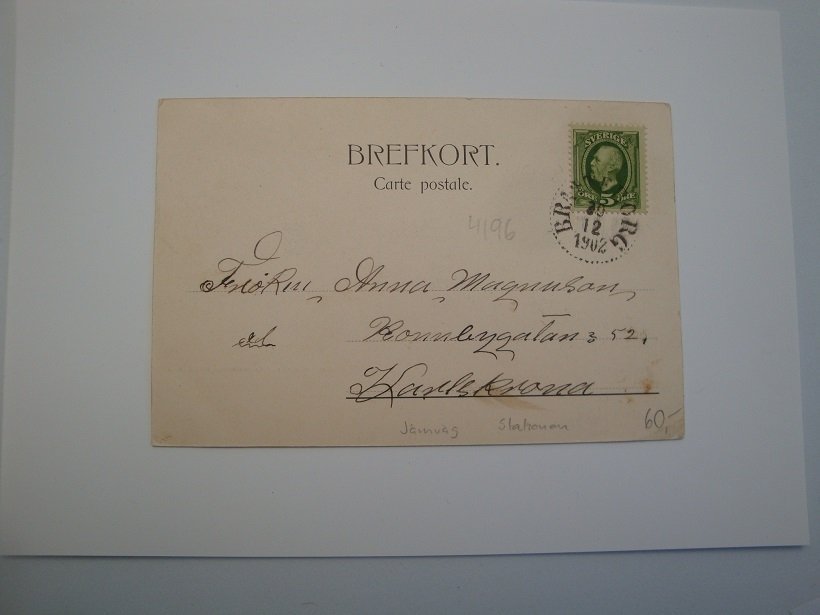 BREFKORT.
Carte postale.
SVERIGE
5
12
1902
4196
Fröken Anna Magnuson
Ronnebygatan 52.
Karlskrona
Järnväg Stationen
60,-